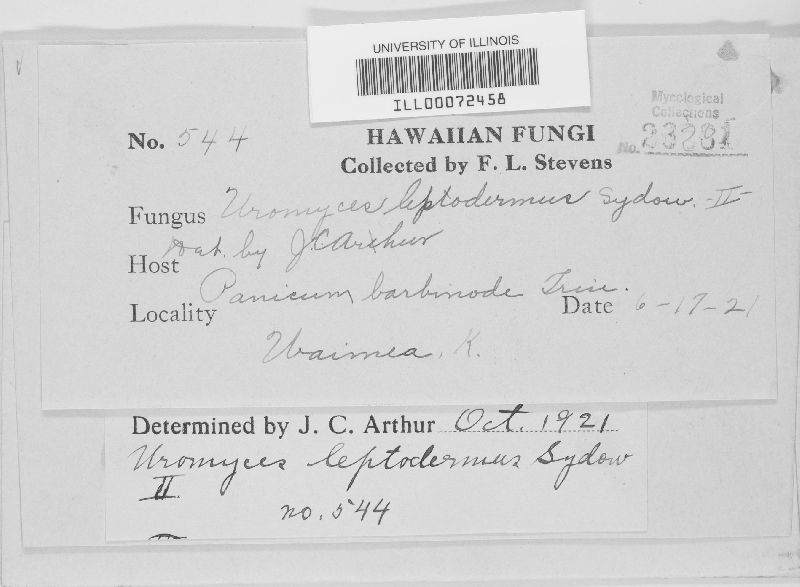 UNIVERSITY OF ILLINOIS
ILL00072458
Mycological
Collections
No. 23281
No. 544
HAWAIIAN FUNGI
Collected by F. L. Stevens
Fungus Uromyces leptodermus Sydow. II
Dat. by J.C. Arthur
Host Panicum barbinode Trin.
Locality Waimea, K.
Date 6-17-21
Determined by J. C. Arthur Oct. 1921
Uromyces leptodermus Sydow
II
no. 544